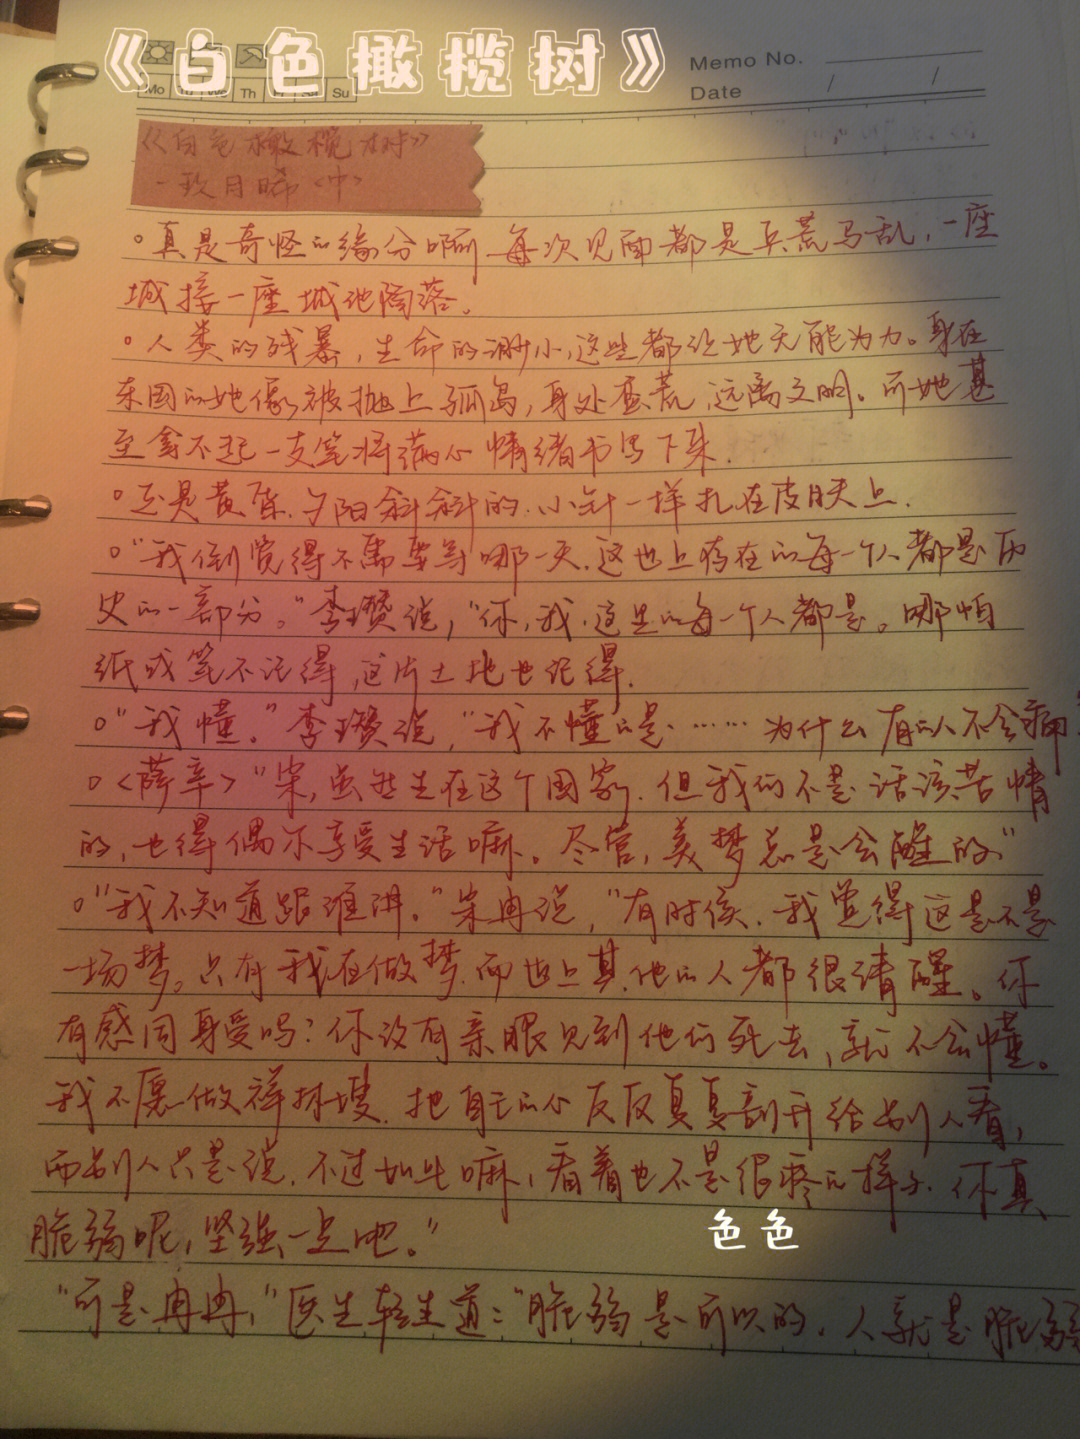 《白色橄榄树》
Memo No.
Date / /
Mo Tu We Th Fr Sa Su
《白色橄榄树》
一玖月晞〈中〉
。真是奇怪的缘分啊,每次见面都是兵荒马乱,一座
城接一座城池陷落。
。人类的残暴,生命的渺小,这些都让她无能为力。身在
东国的她像被抛上孤岛,身处蛮荒,远离文明。可她甚
至拿不起一支笔将满心情绪书写下来.
。还是黄昏.夕阳斜斜的.小针一样扎在皮肤上.
。“我倒觉得不需要等哪一天.这世上存在的每一个人都是历
史的一部分。”李瓒说,“你,我,这里的每一个人都是。哪怕
纸或笔不记得,这片土地也记得.
。“我懂。”李瓒说,“我不懂的是……为什么有的人不会痛
。〈萨辛〉“宋,虽然生在这个国家.但我们不是活该苦情
的,也得偶尔享受生活嘛。尽管,美梦总是会醒的”
。“我不知道跟谁讲。”宋冉说,“有时侯.我觉得这是不是
一场梦。只有我在做梦.而世上其他的人都很清醒。你
有感同身受吗?你没有亲眼见到他们死去,就不会懂。
我不愿做祥林嫂.把自己的心反反复复剖开给别人看,
而别人只是说.不过如此嘛,看着也不是很疼的样子.你真
脆弱呢,坚强一点吧。”
色色
“可是冉冉,”医生轻生道:“脆弱是可以的.人就是脆弱